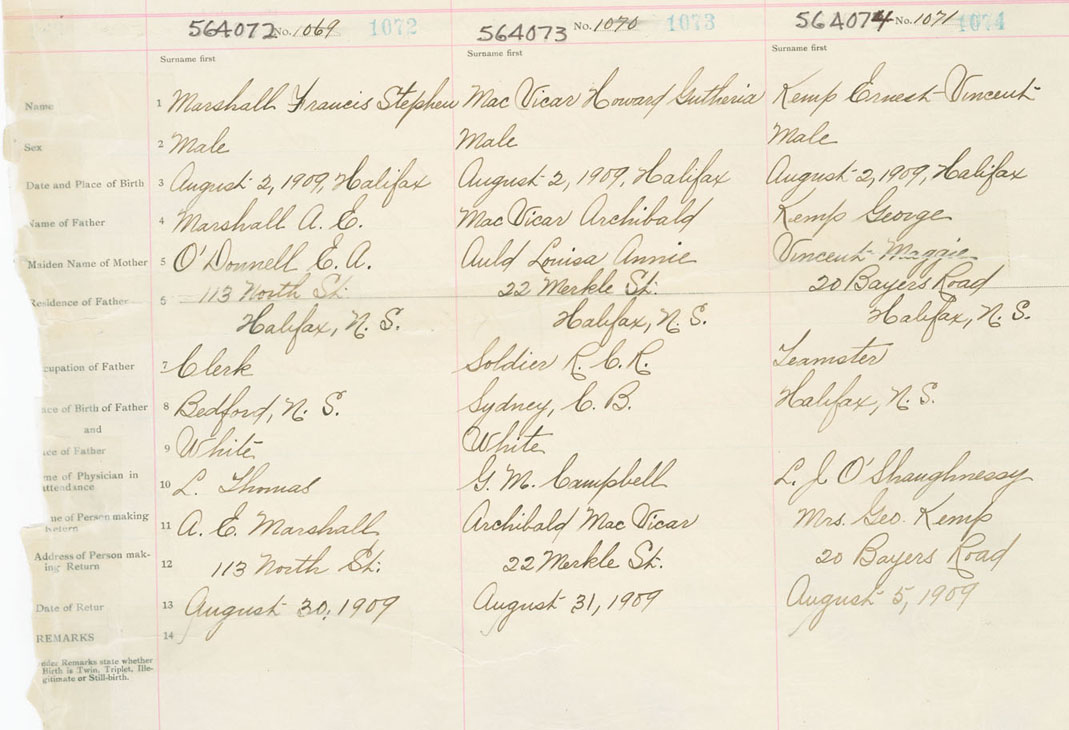 564072 No. 1069 1072 564073 No. 1070 1073 564074 No. 1071 1074
Surname first Surname first Surname first
Name 1 Marshall Francis Stephen Mac Vicar Howard Gutheria Kemp Ernest Vincent
Sex 2 Male Male Male
Date and Place of Birth 3 August 2, 1909, Halifax August 2, 1909, Halifax August 2, 1909, Halifax
Name of Father 4 Marshall A. E. Mac Vicar Archibald Kemp George
Maiden Name of Mother 5 O'Donnell E. A. Auld Louisa Annie Vincent Maggie
Residence of Father 6 113 North St. 22 Merkle St. 20 Bayers Road
Halifax, N. S. Halifax, N. S. Halifax, N. S.
cupation of Father 7 Clerk Soldier R. C. R. Teamster
ace of Birth of Father 8 Bedford, N. S. Sydney, C. B. Halifax, N. S.
and
ace of Father 9 White White
me of Physician in
attendance 10 L. Thomas G. M. Campbell L. J. O'Shaughnessy
me of Person making
Return 11 A. E. Marshall Archibald Mac Vicar Mrs. Geo. Kemp
Address of Person mak-
ing Return 12 113 North St. 22 Merkle St. 20 Bayers Road
Date of Retur 13 August 30, 1909 August 31, 1909 August 5, 1909
REMARKS 14
Remarks state whether
Birth is Twin, Triplet, Ille-
gitimate or Still-birth.